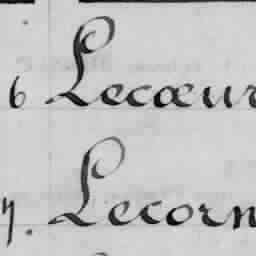 6 Lecœur
7. Lecorn